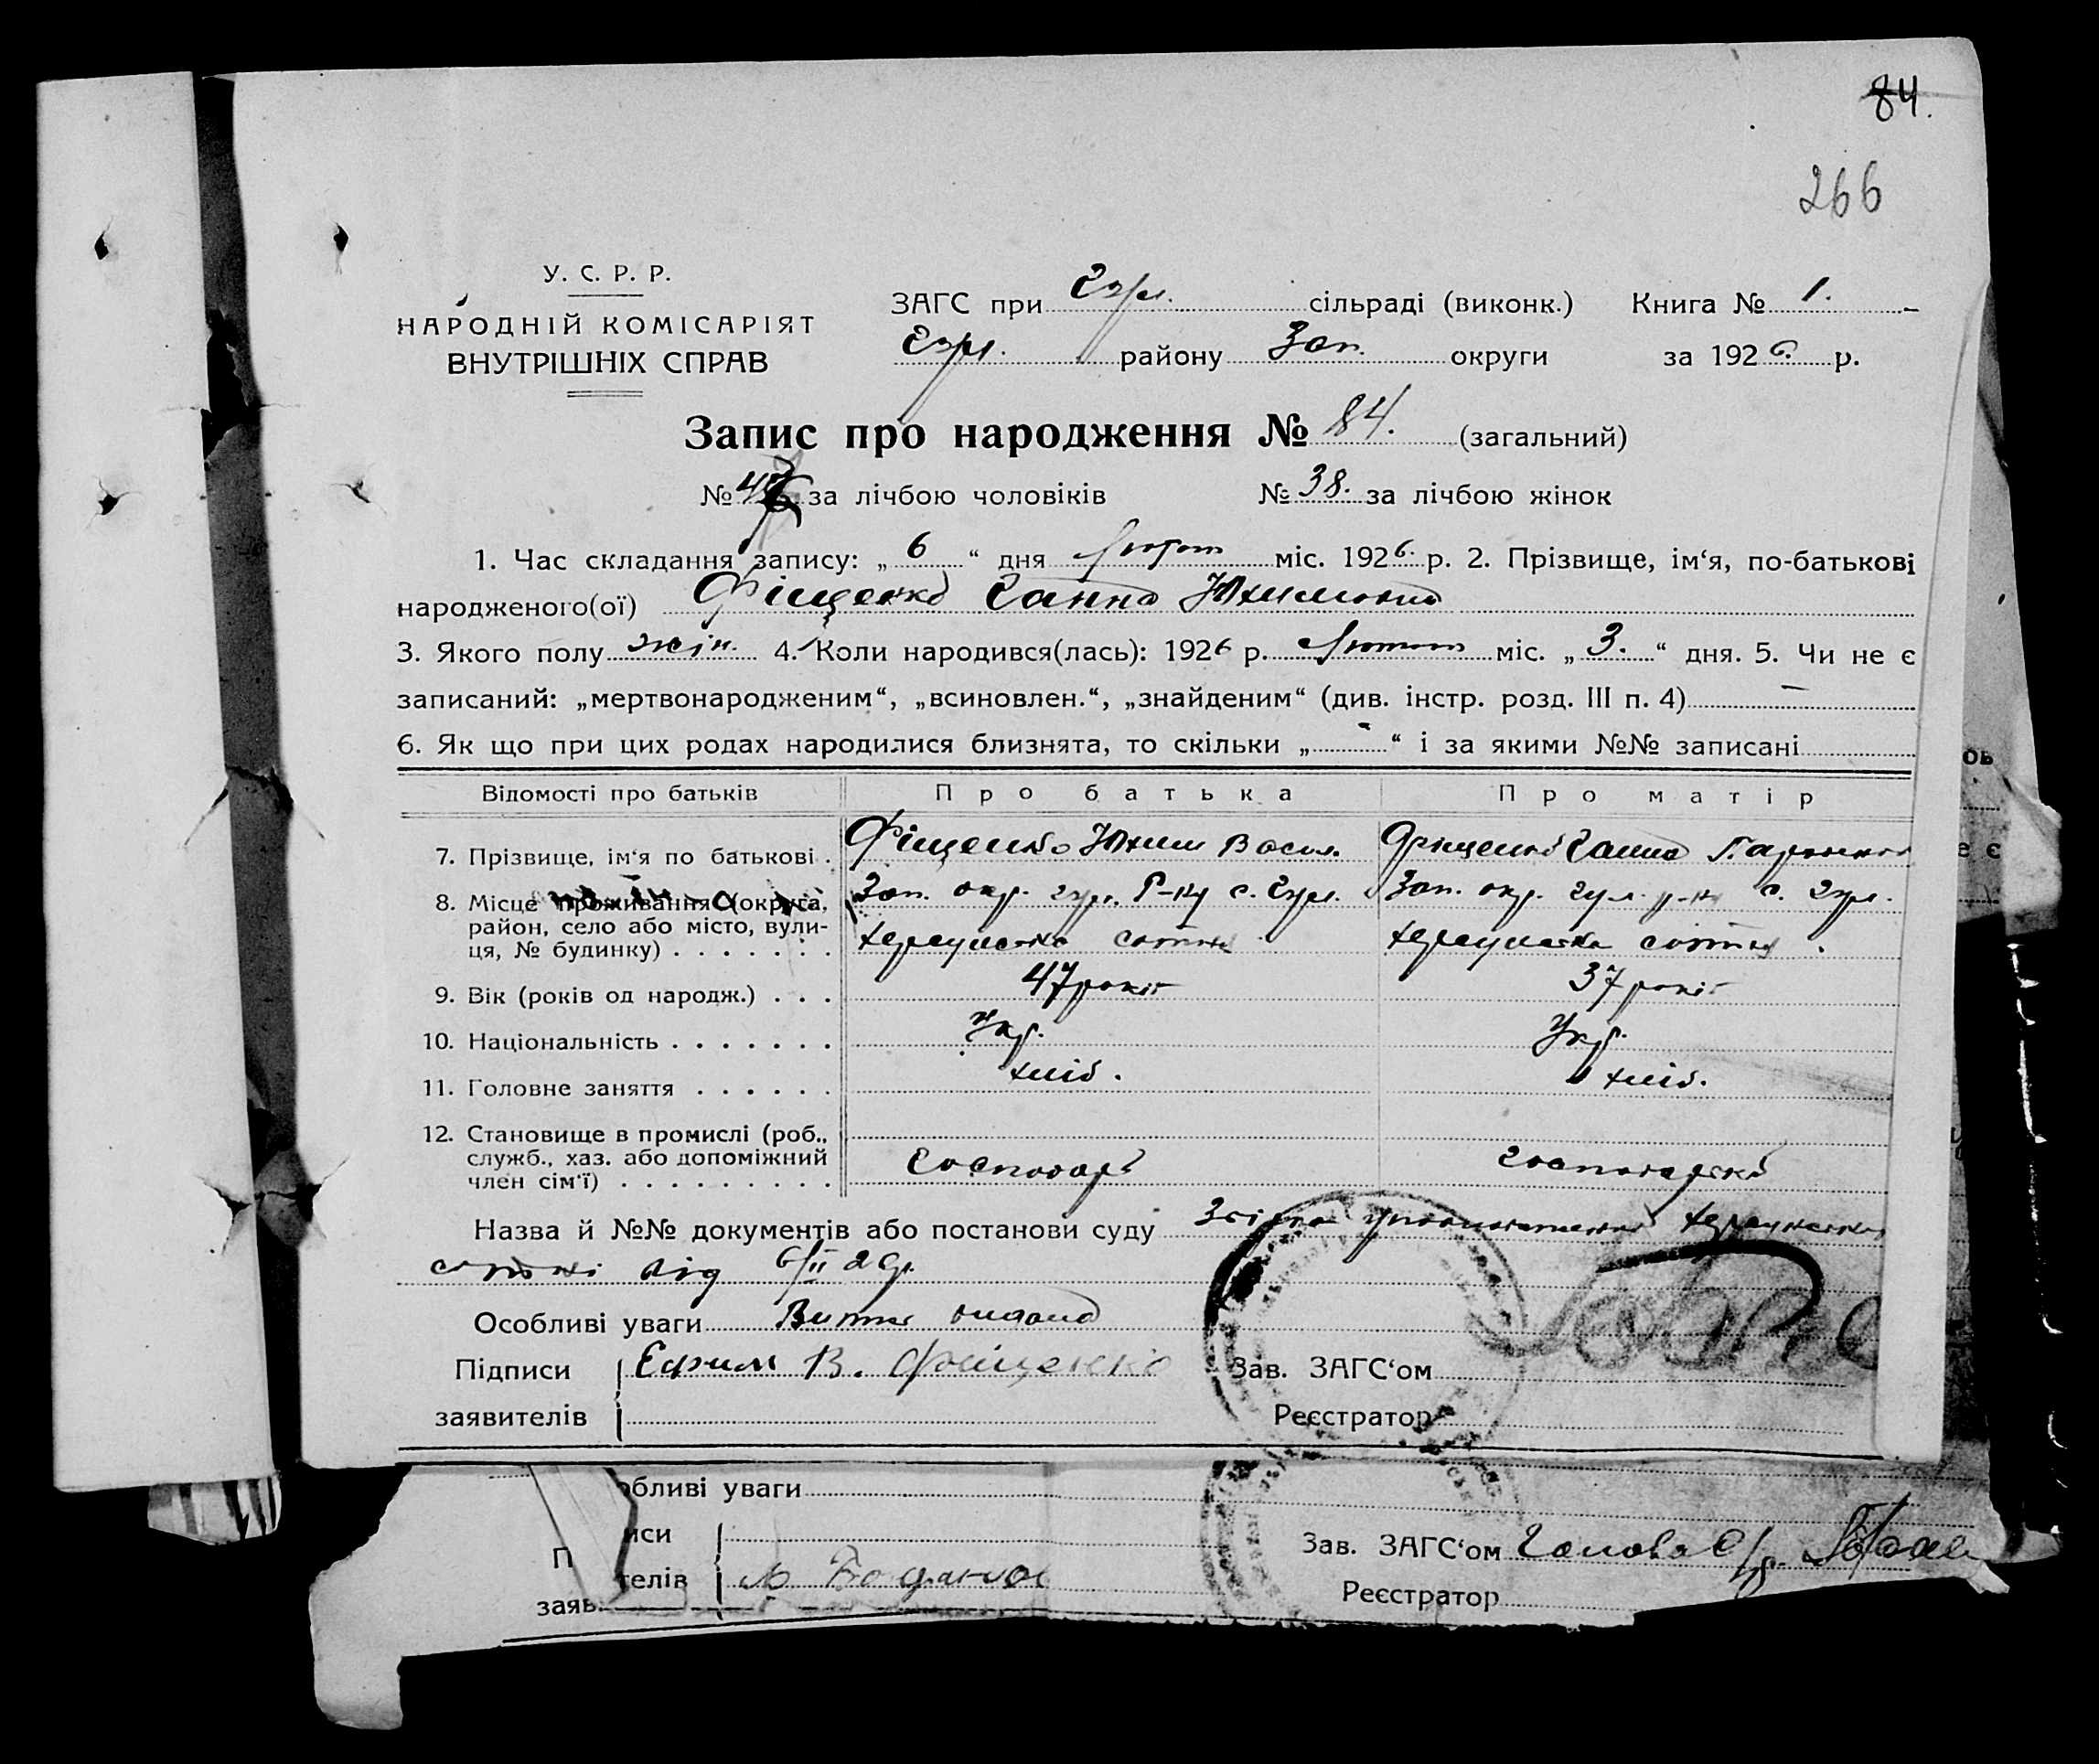 84.
266
У. С. Р. Р.
НАРОДНІЙ КОМІСАРІЯТ
ВНУТРІШНІХ СПРАВ
ЗАГС при Гул. сільраді (виконк.) Книга № 1.
Гул. району Зап. округи за 1926. р.
Запис про народження № 84. (загальний)
№ 47 за лічбою чоловіків № 38. за лічбою жінок
1. Час складання запису: „ 6 “ дня Лютого міс. 1926. р. 2. Прізвище, ім‘я, по-батькові
народженого(ої) Фіщенко Ганна Юхимовна
3. Якого полу жін. 4. Коли народився(лась): 1926 р. Лютого міс. „ 3. “ дня. 5. Чи не є
записаний: „мертвонародженим“, „всиновлен.“, „знайденим“ (див. інстр. розд. III п. 4) —
6. Як що при цих родах народилися близнята, то скільки „ - “ і за якими №№ записані
Відомості про батьків Про батька Про матір
7. Прізвище, ім‘я по батькові . Фіщенко Юхим Васил. Фіщенко Ганна
8. Місце проживання (округа, Зап. окр. Гул. Р-ну с. Гул. Зап. окр. Гул. р-ну с. Гул.
район, село або місто, вули- сотня сотня
ця, № будинку) . . . . . . .
9. Вік (років од народж.) . . . 47 років 37 років
10. Національність . . . . . . . Укр. Укр.
11. Головне заняття . . . . . . хліб. хліб.
12. Становище в промислі (роб.,
служб., хаз. або допоміжний господарь господарка
член сім‘ї) . . . . . . . . .
Назва й №№ документів або постанови суду
сотні від 6/II 26р.
Особливі уваги Витяг видано
Підписи Ефим В. Фоіщенко Зав. ЗАГС‘ом
заявителів Реєстратор
обливі уваги
иси
П
телів
заяв.
Зав. ЗАГС‘ом Голова С/р.
Реєстратор
ов
е є